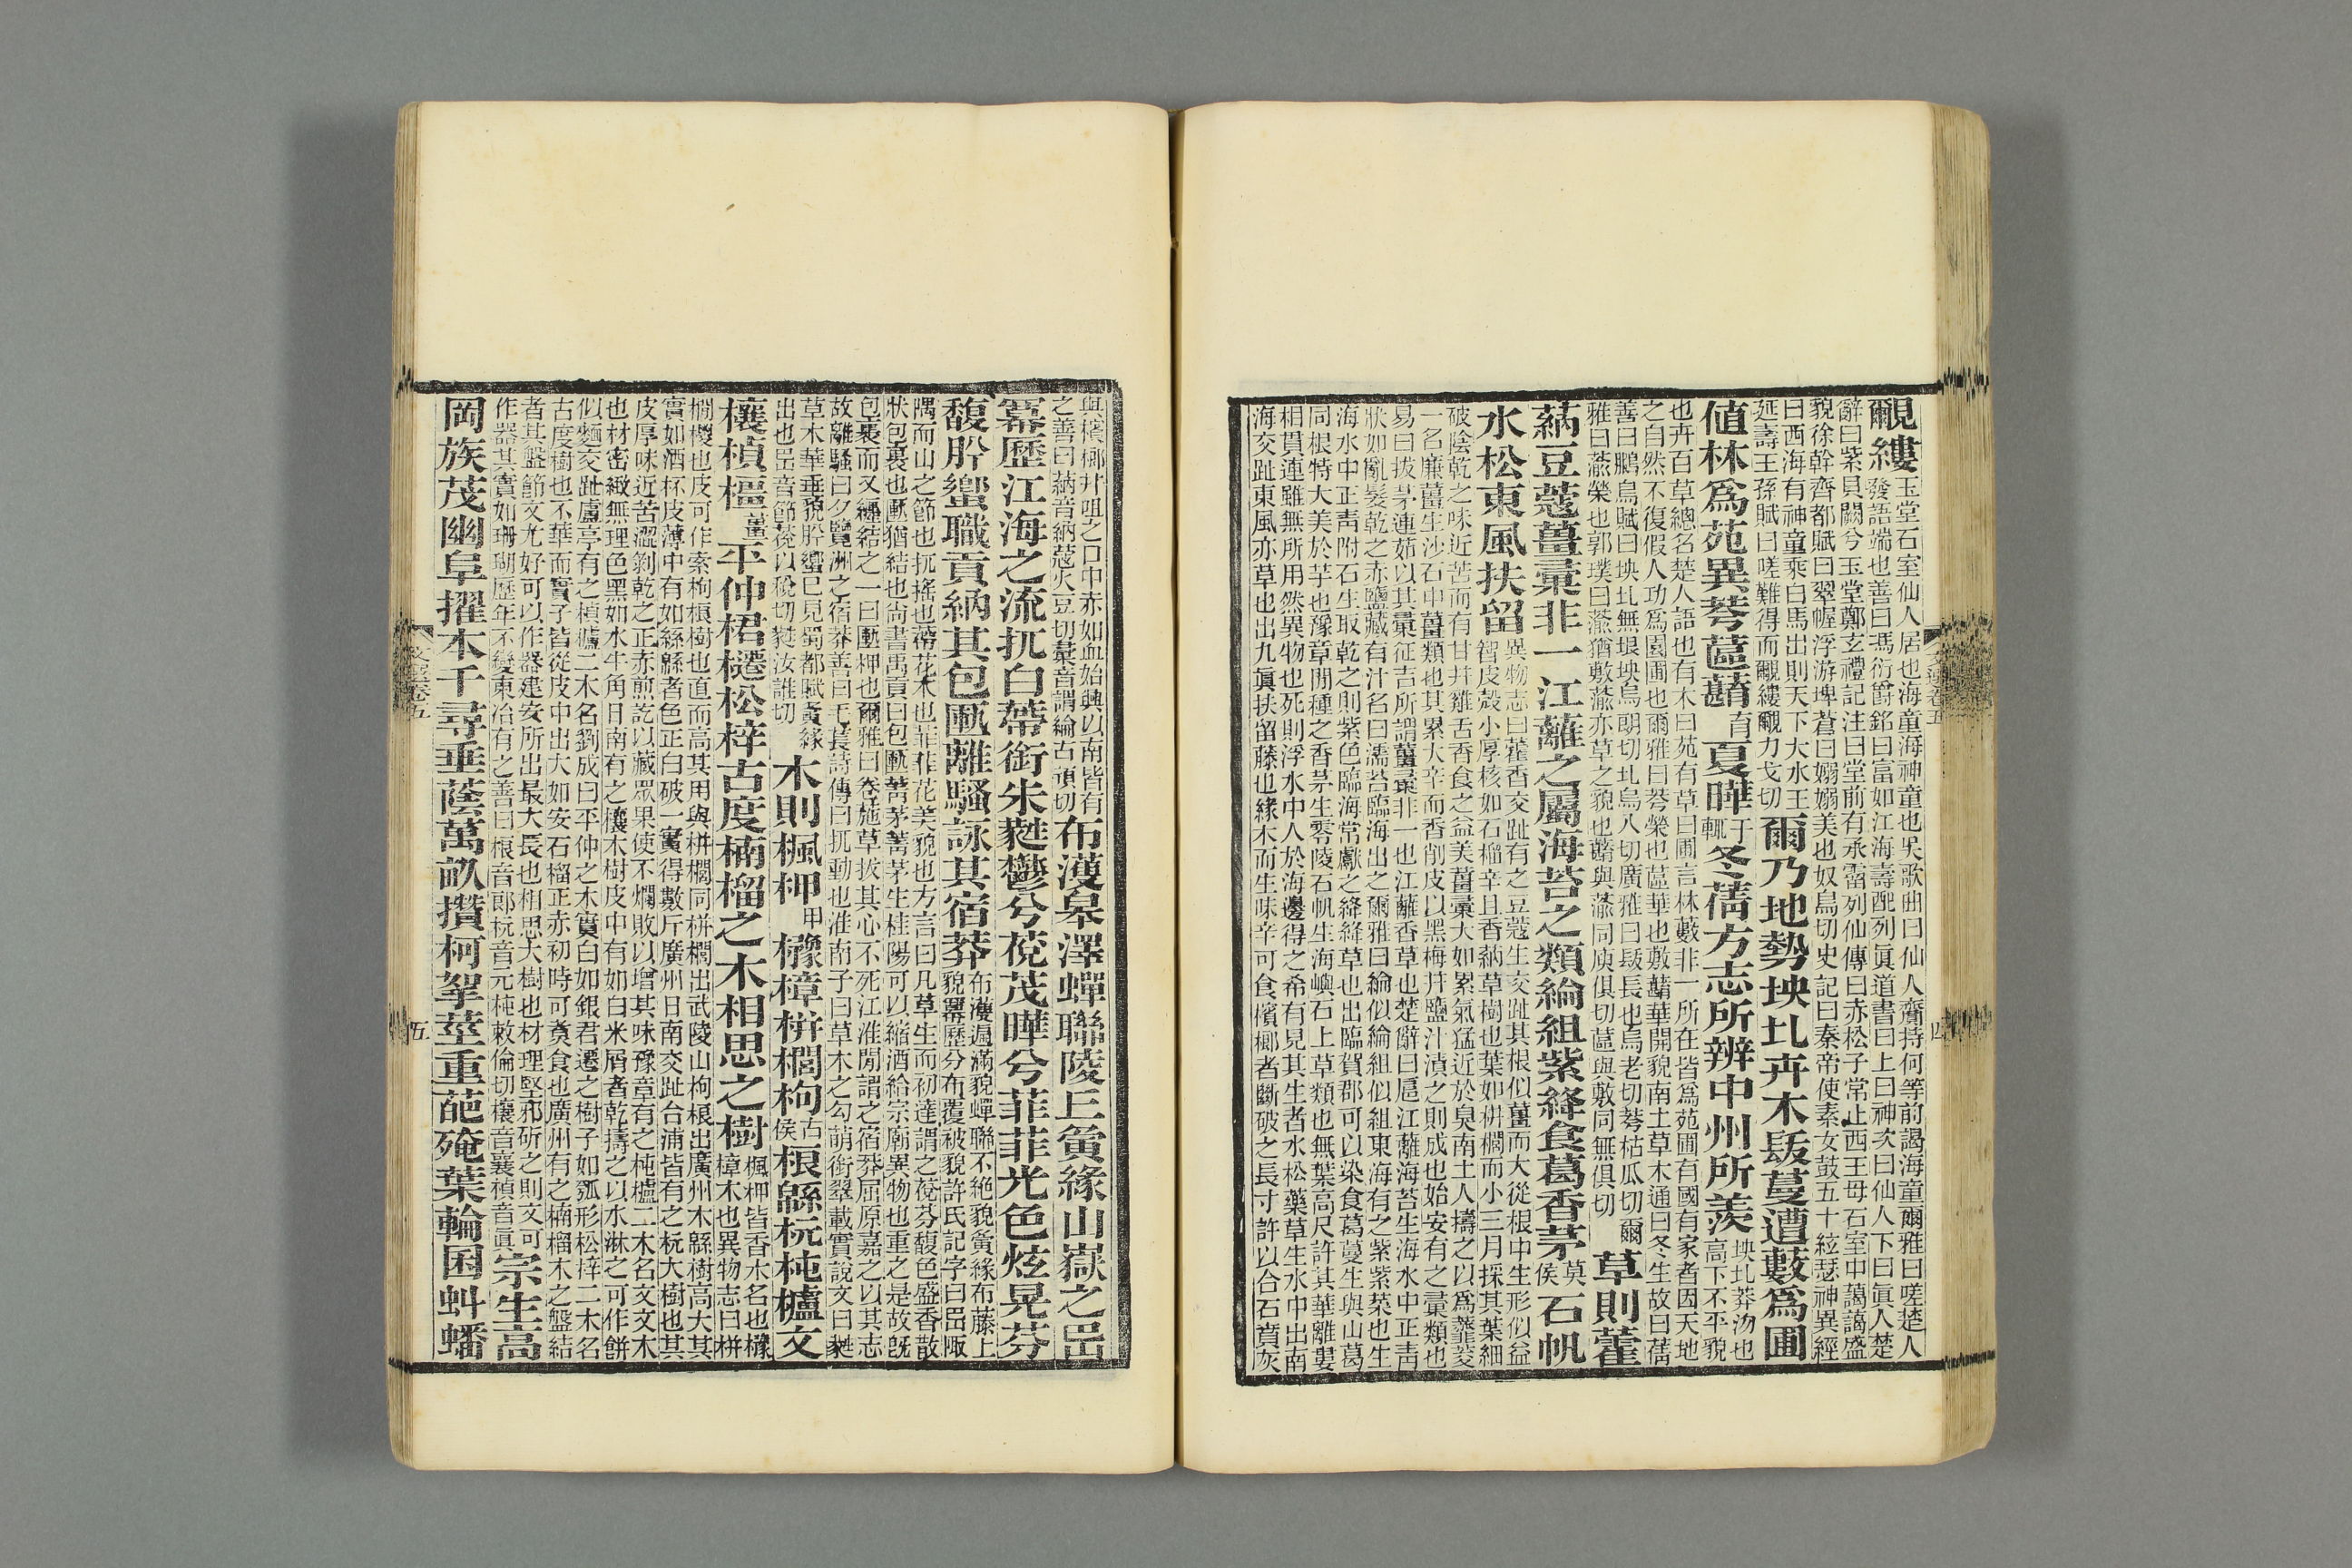 覼縷
玉堂石室仙人居也海童海神童也吳歌曲曰仙人齎持何等前謁海童爾雅曰嗟楚人
發語端也善曰馮衍爵銘曰富如江海壽配列眞道書曰上曰神次曰仙人下曰眞人楚
辭曰紫貝闕兮玉堂鄭玄禮記注曰堂前有承霤列仙傳曰赤松子常止西王母石室中藹藹盛
貌徐幹齊都賦曰翠幄浮游埤蒼曰嫋嫋美也奴鳥切史記曰秦帝使素女鼓五十絃瑟神異經
曰西海有神童乘白馬出則天下大水王
延壽王孫賦曰嗟難得而覼縷覼力戈切
爾乃地勢坱圠卉木镺蔓遭藪爲圃
値林爲苑異荂蓲蘛育夏曄于輒冬蒨方志所辨中州所羨
坱圠莽沕也
高下不平貌
也卉百草總名楚人語也有木曰苑有草曰圃言林藪非一所在皆爲苑圃有國有家者因天地
之自然不復假人功爲園圃也爾雅曰荂榮也蓲華也敷蘛華開貌南土草木通曰冬生故曰蒨
善曰鵩鳥賦曰坱圠無垠坱烏朗切圠烏八切廣雅曰镺長也烏老切荂枯瓜切爾
雅曰蕍榮也郭璞曰蕍猶敷蕍亦草之貌也蘛與蕍同庾俱切蓲與敷同無俱切
草則藿
蒳豆蔻薑彙非一江蘺之屬海苔之類綸組紫絳食葛香茅莫侯石帆
水松東風扶留
異物志曰藿香交趾有之豆蔻生交趾其根似薑而大從根中生形似益
智皮殻小厚核如石榴辛且香蒳草樹也葉如栟櫚而小三月採其葉細
破陰乾之味近苦而有甘幷雞舌香食之益美薑彙大如累氣猛近於臭南土人擣之以爲虀菱
一名廉薑生沙石中薑類也其累大辛而香削皮以黑梅幷鹽汁漬之則成也始安有之彙類也
易曰拔茅連茹以其彙征吉所謂薑彙非一也江蘺香草也楚辭曰扈江蘺海苔生海水中正青
狀如亂髮乾之赤鹽藏有汁名曰濡苔臨海出之爾雅曰綸似綸組似組東海有之紫紫菜也生
海水中正青附石生取乾之則紫色臨海常獻之絳絳草也出臨賀郡可以染食葛蔓生與山葛
同根特大美於芋也豫章閒種之香茅生零陵石帆生海嶼石上草類也無葉高尺許其華離婁
相貫連雖無所用然異物也死則浮水中人於海邊得之希有見其生者水松藥草生水中出南
海交趾東風亦草也出九眞扶留藤也緣木而生味辛可食檳榔者斷破之長寸許以合石賁灰
與檳榔幷咀之口中赤如血始興以南皆有
之善曰蒳音納蔻火豆切彙音謂綸古頑切
布濩皋澤蟬聯陵丘夤緣山嶽之岊
冪歷江海之流扤白蔕銜朱蕤鬱兮茷茂曄兮菲菲光色炫晃芬
馥肸蠁職貢納其包匭離騷詠其宿莽
布濩遍滿貌蟬聯不絕貌夤緣布藤上
貌冪歷分布覆被貌許氏記字曰岊陬
隅而山之節也扤搖也蔕花本也菲菲花美貌也方言曰凡草生而初達謂之茷芬馥色盛香散
狀包裹也匭猶結也尚書禹貢曰包匭菁茅菁茅生桂陽可以縮酒給宗廟異物也重之是故旣
包裹而又纏結之一曰匭柙也爾雅曰卷葹草拔其心不死江淮閒謂之宿莽屈原嘉之以其志
故離騷曰夕覽洲之宿莽善曰毛萇詩傳曰扤動也淮南子曰草木之勾萌銜翠戴實說文曰蕤
草木華垂貌肸蠁已見蜀都賦夤緣
出也岊音節茷以稅切蕤汝誰切
木則楓柙甲櫲樟栟櫚枸古侯桹緜杬杶櫨文
欀楨橿薑平仲桾櫏松梓古度楠榴之木相思之樹
楓柙皆香木名也櫲
樟木也異物志曰栟
櫚椶也皮可作索枸桹樹也直而高其用與栟櫚同栟櫚出武陵山枸桹出廣州木緜樹高大其
實如酒杯皮薄中有如絲緜者色正白破一實得數斤廣州日南交趾合浦皆有之杬大樹也其
皮厚味近苦澀剝乾之正赤煎訖以藏眾果使不爛敗以增其味豫章有之杶櫨二木名文文木
也材密緻無理色黑如水牛角日南有之欀木樹皮中有如白米屑者乾擣之以水淋之可作餅
似麵交趾盧亭有之楨橿二木名劉成曰平仲之木實白如銀君遷之樹子如瓠形松梓二木名
古度樹也不華而實子皆從皮中出大如安石榴正赤初時可煑食也廣州有之楠榴木之盤結
者其盤節文尤好可以作器建安所出最大長也相思大樹也材理堅邪斫之則文可
作器其實如珊瑚歷年不變東冶有之善曰桹音郎杬音元杶敕倫切欀音襄楨音眞
宗生高
岡族茂幽阜擢本千尋垂蔭萬畝攢柯挐莖重葩殗葉輪囷虯蟠
文選卷五
四
文選卷五
五